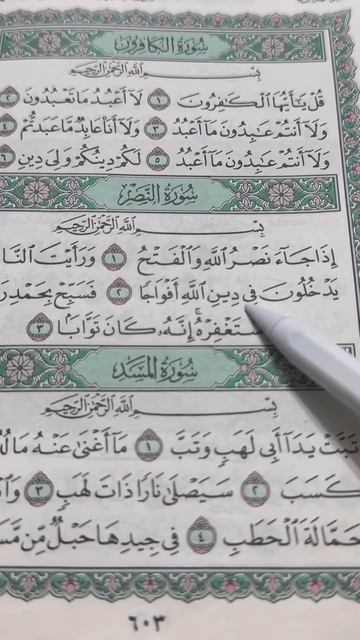 سُورَةُ الكَافِرُونَ
بِسْمِ اللَّهِ الرَّحْمَٰنِ الرَّحِيمِ
قُلْ يَٰٓأَيُّهَا ٱلْكَٰفِرُونَ ١ لَآ أَعْبُدُ مَا تَعْبُدُونَ ٢
وَلَآ أَنتُمْ عَٰبِدُونَ مَآ أَعْبُدُ ٣ وَلَآ أَنَا۠ عَابِدٌ مَّا عَبَدتُّمْ ٤
وَلَآ أَنتُمْ عَٰبِدُونَ مَآ أَعْبُدُ ٥ لَكُمْ دِينُكُمْ وَلِىَ دِينِ ٦
سُورَةُ النَّصْرِ
بِسْمِ اللَّهِ الرَّحْمَٰنِ الرَّحِيمِ
إِذَا جَآءَ نَصْرُ ٱللَّهِ وَٱلْفَتْحُ ١ وَرَأَيْتَ ٱلنَّا
يَدْخُلُونَ فِى دِينِ ٱللَّهِ أَفْوَاجًا ٢ فَسَبِّحْ بِحَمْدِ رَ
سْتَغْفِرْهُ ۚ إِنَّهُۥ كَانَ تَوَّابًۢا ٣
سُورَةُ المَسَدِ
بِسْمِ اللَّهِ الرَّحْمَٰنِ الرَّحِيمِ
تَبَّتْ يَدَآ أَبِى لَهَبٍ وَتَبَّ ١ مَآ أَغْنَىٰ عَنْهُ مَالُهُ
كَسَبَ ٢ سَيَصْلَىٰ نَارًا ذَاتَ لَهَبٍ ٣ وَٱ
حَمَّالَةَ ٱلْحَطَبِ ٤ فِى جِيدِهَا حَبْلٌ مِّن مَّسَ
٦٠٣